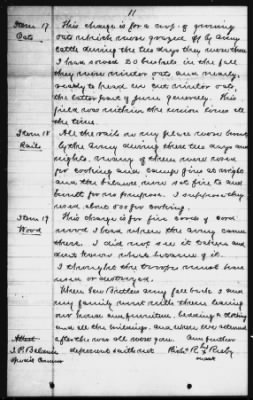 11
Item 17 This charge is for a crop of growing
Oats oats which were grazed off by Army
cattle during the two days they were there
I had sowed 20 bushels in the fall
they were winter oats and nearly
ready to head we cut winter oats
the latter part of June generally. This
field was within the union lines all
the time.
Item 18 All the rails on my place were burnt
Rails by the Army during these two days and
nights, many of them were used
for cooking and camp fires at night
and the balance were set fire to and
burnt for no purpose. I suppose they
used about 500 for cooking.
Item 19 This charge is for five cords of cord
Wood wood I had when the army came
there. I did not see it taken and
dont know what became of it.
I thought the troops must have
used or destroyed.
When Gen Butlers army fell back I and
my family went with them leaving
our house and furniture, bedding & clothing
and all the buildings, and when we returned
Attest after the war all were gone. And further
deponent saith not Richd R. his x
Special Commr mark